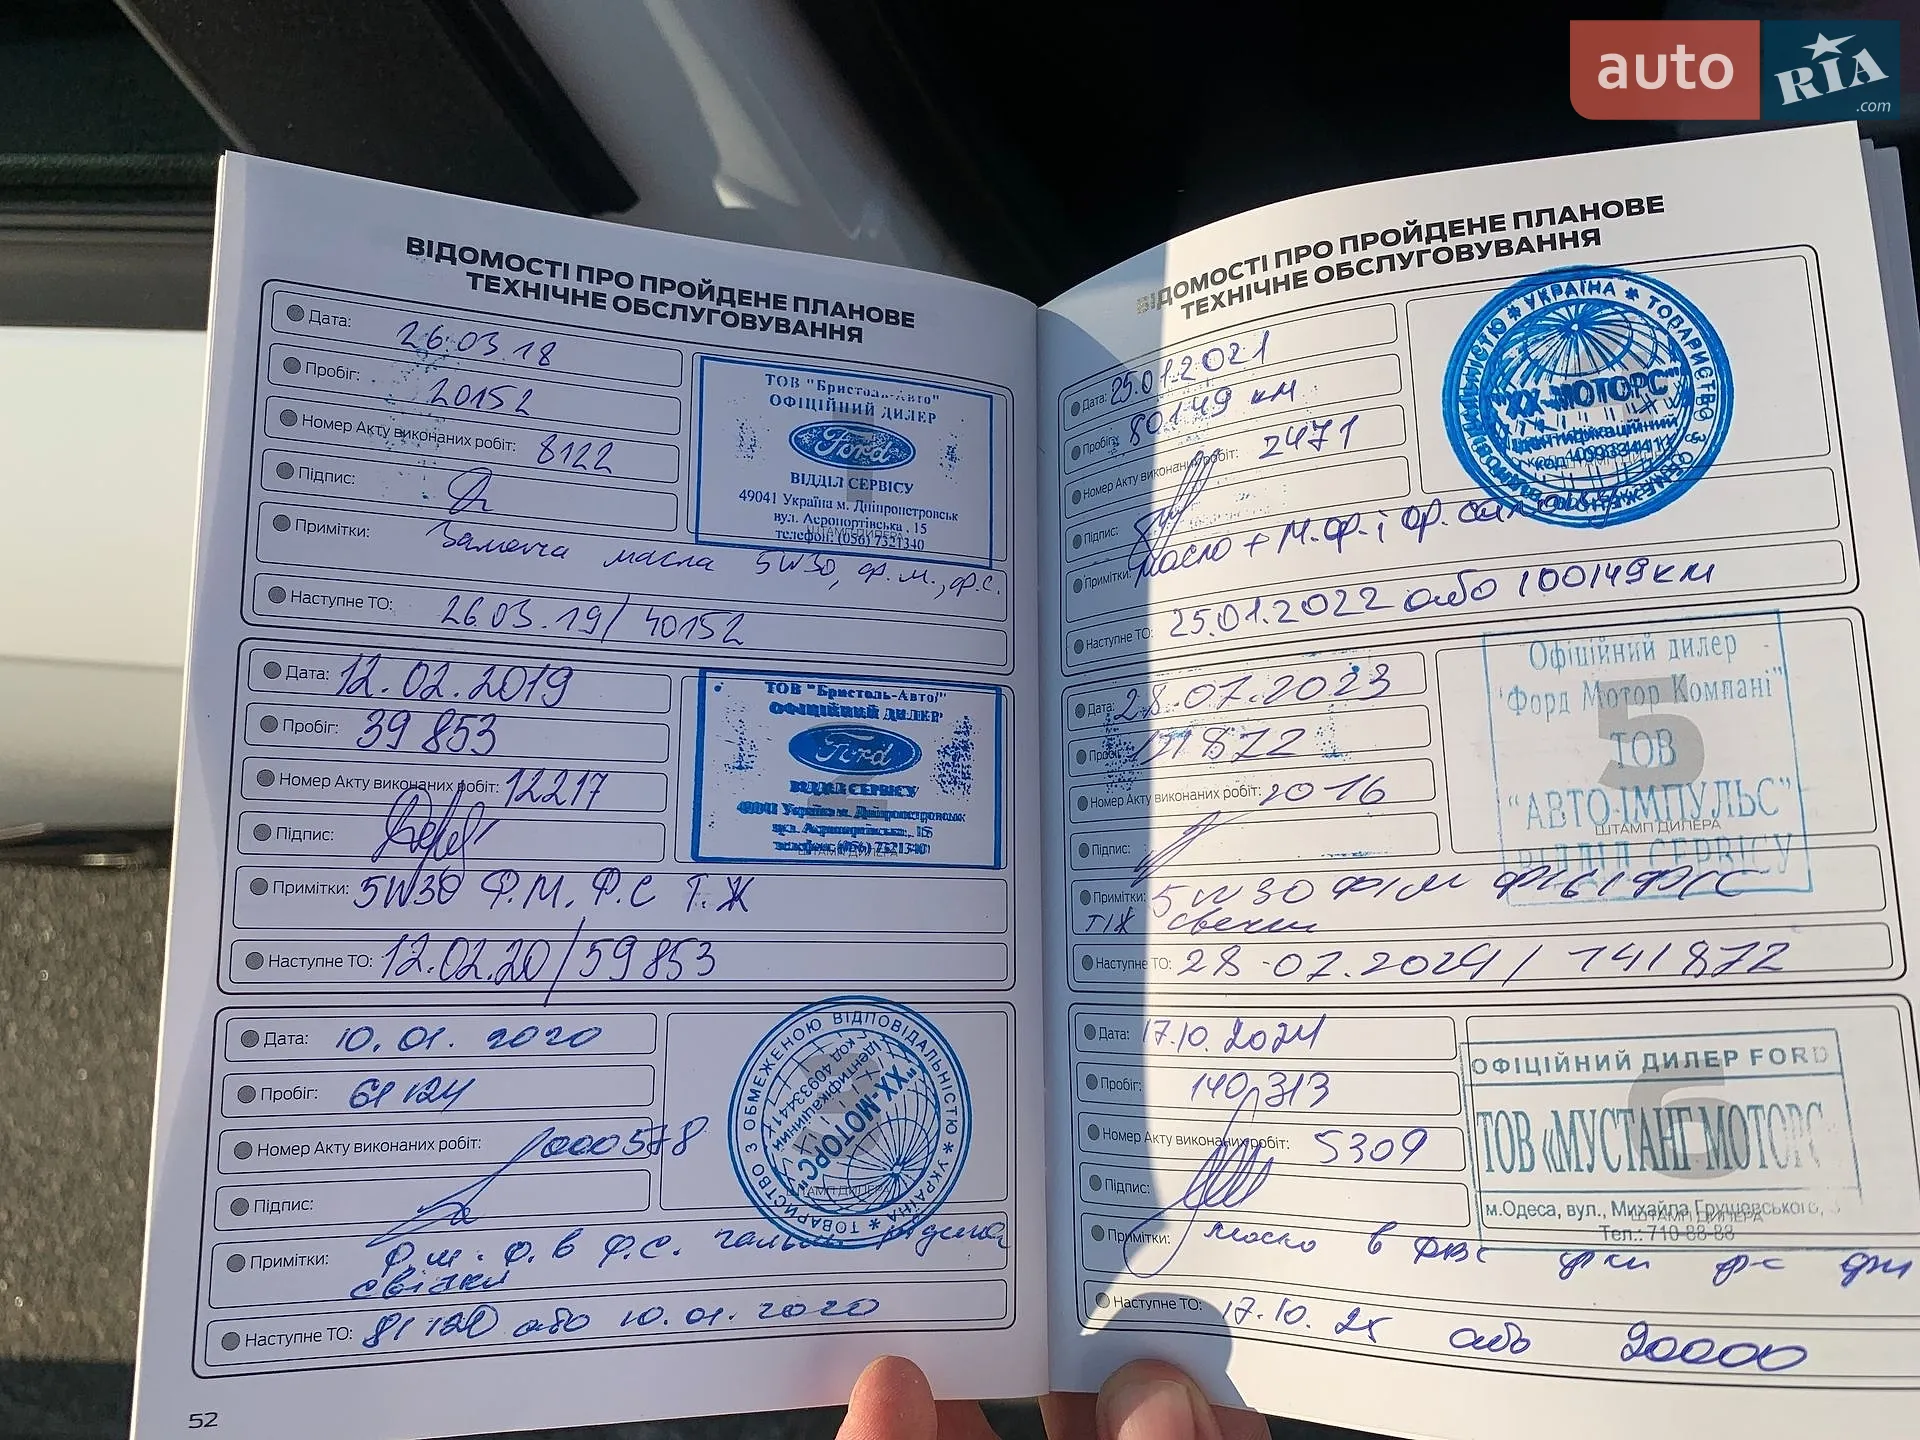 auto RIA.com
ВІДОМОСТІ ПРО ПРОЙДЕНЕ ПЛАНОВЕ
ТЕХНІЧНЕ ОБСЛУГОВУВАННЯ
Дата: 26.03.18
Пробіг: 20152
Номер Акту виконаних робіт: 8122
Підпис:
Примітки: Заміна масла 5W30, ф.м., ф.с.
Наступне ТО: 26.03.19/40152
ТОВ "Бристоль-Авто"
ОФІЦІЙНИЙ ДИЛЕР
Ford
ВІДДІЛ СЕРВІСУ
49041 Україна м. Дніпропетровськ
вул. Аеропортівська, 15
телефон: (056) 7321340
Дата: 12.02.2019
Пробіг: 39 853
Номер Акту виконаних робіт: 12217
Підпис:
Примітки: 5W30 Ф.М. Ф.С Т.Ж
Наступне ТО: 12.02.20/59853
ТОВ "Бристоль-Авто"
ОФІЦІЙНИЙ ДИЛЕР
Ford
ВІДДІЛ СЕРВІСУ
49041 Україна м. Дніпропетровськ
вул. Аеропортівська, 15
телефон: (056) 7321340
ШТАМП ДИЛЕРА
Дата: 10.01.2020
Пробіг: 61124
Номер Акту виконаних робіт: 0000578
Підпис:
Примітки: Ф.м. Ф.в Ф.С. рідина
свічки
Наступне ТО: або 10.01.2020
ТОВАРИСТВО З ОБМЕЖЕНОЮ ВІДПОВІДАЛЬНІСТЮ * УКРАЇНА *
"ХХ-МОТОРС"
Ідентифікаційний
код 40933441
ШТАМП ДИЛЕРА
52
ВІДОМОСТІ ПРО ПРОЙДЕНЕ ПЛАНОВЕ
ТЕХНІЧНЕ ОБСЛУГОВУВАННЯ
Дата: 25.01.2021
Пробіг: 80149 км
Номер Акту виконаних робіт: 2471
Підпис:
Примітки: масло + м.ф. і ф. салону
Наступне ТО: 25.01.2022 або 100149км
* УКРАЇНА * ТОВАРИСТВО З ОБМЕЖЕНОЮ ВІДПОВІДАЛЬНІСТЮ
"ХХ-МОТОРС"
Ідентифікаційний
код 40933441
Дата: 28.07.2023
Пробіг: 121872
Номер Акту виконаних робіт: 2016
Підпис:
Примітки: 5W30
Т/Ж свечи
Наступне ТО: 28.07.2024/141872
Офіційний дилер
"Форд Мотор Компані"
5
ТОВ
"АВТО-ІМПУЛЬС"
ШТАМП ДИЛЕРА
ВІДДІЛ СЕРВІСУ
Дата: 17.10.2024
Пробіг: 140313
Номер Акту виконаних робіт: 5309
Підпис:
Примітки: масло в
Наступне ТО: 17.10.25 або 20000
ОФІЦІЙНИЙ ДИЛЕР FORD
6
ТОВ «МУСТАНГ МОТОРС
м.Одеса, вул., Михайла Грушевського,
ШТАМП ДИЛЕРА
Тел.: 710-88-88